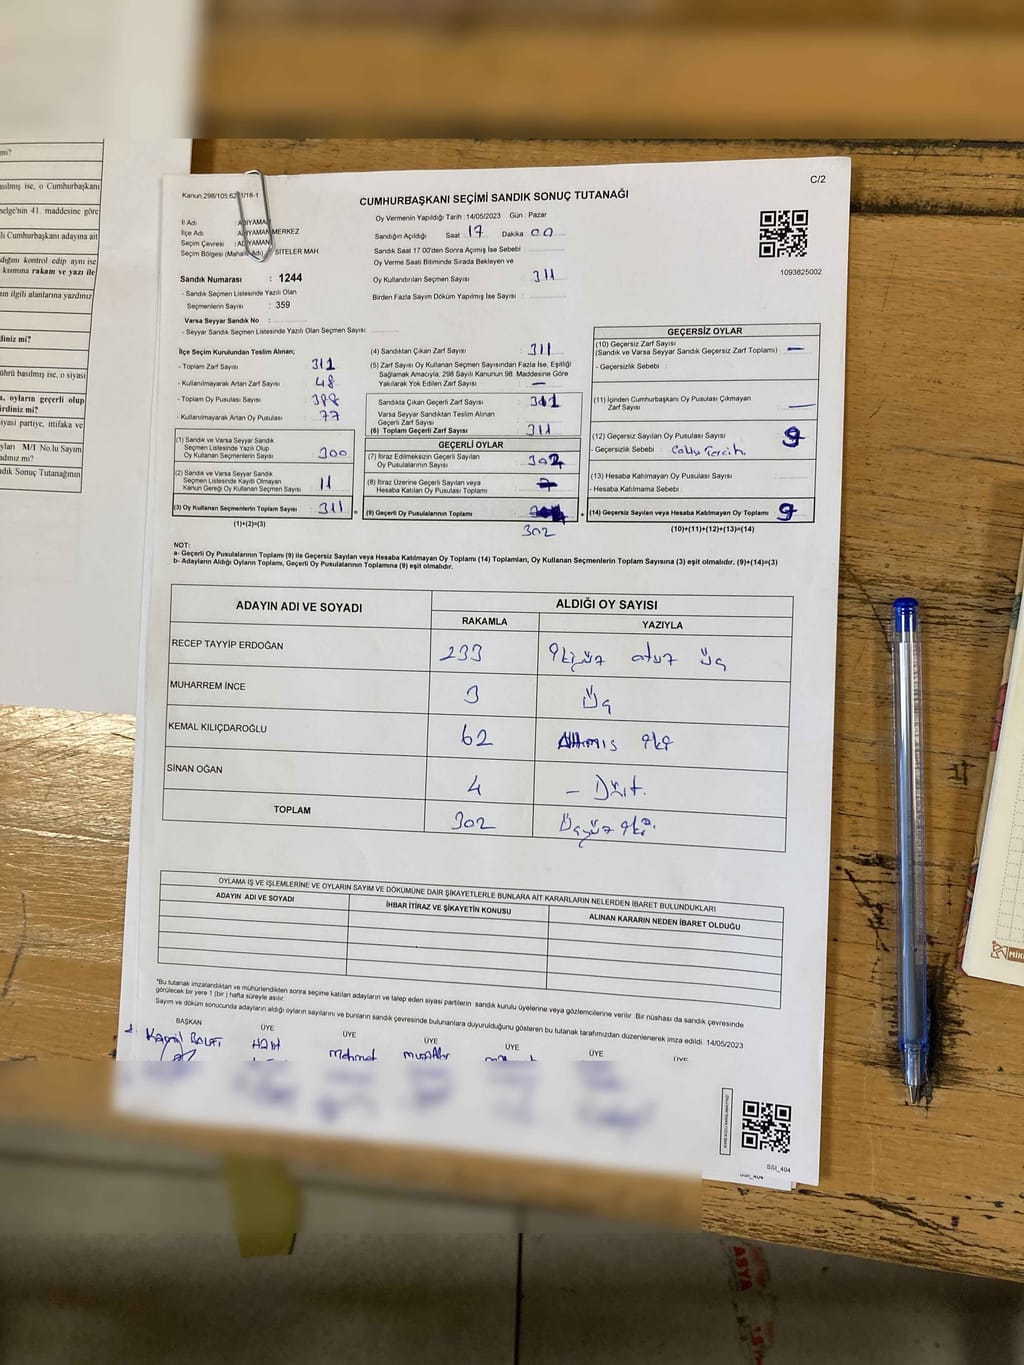 mi?
asılmış ise, o Cumhurbaşkanı
nelge'nin 41. maddesine göre
li Cumhurbaşkanı adayına ait
dığını kontrol edip aynı ise
kısmına rakam ve yazı ile
ın ilgili alanlarına yazdınız
diniz mi?
ührü basılmış ise, o siyasi
a, oyların geçerli olup
irdiniz mi?
iyasi partiye, ittifaka ve
yları M/1 No.lu Sayım
adınız mı?
ndık Sonuç Tutanağının
C/2
Kanun:298/105:62 1/18-1
CUMHURBAŞKANI SEÇİMİ SANDIK SONUÇ TUTANAĞI
İl Adı : ADIYAMAN
İlçe Adı : ADIYAMAN MERKEZ
Seçim Çevresi : ADIYAMAN
Seçim Bölgesi (Mahalle Adı) : SİTELER MAH.
Oy Vermenin Yapıldığı Tarih :14/05/2023 Gün : Pazar
Sandığın Açıldığı Saat 17 Dakika 00
Sandık Saat 17:00'den Sonra Açılmış İse Sebebi :
Oy Verme Saati Bitiminde Sırada Bekleyen ve
Oy Kullandırılan Seçmen Sayısı : 311
Birden Fazla Sayım Döküm Yapılmış İse Sayısı :
1093825002
Sandık Numarası : 1244
- Sandık Seçmen Listesinde Yazılı Olan
Seçmenlerin Sayısı : 359
Varsa Seyyar Sandık No :
- Seyyar Sandık Seçmen Listesinde Yazılı Olan Seçmen Sayısı :
İlçe Seçim Kurulundan Teslim Alınan;
- Toplam Zarf Sayısı :
- Kullanılmayarak Artan Zarf Sayısı : 48
- Toplam Oy Pusulası Sayısı :
- Kullanılmayarak Artan Oy Pusulası : 77
(1) Sandık ve Varsa Seyyar Sandık
Seçmen Listesinde Yazılı Olup
Oy Kullanan Seçmenlerin Sayısı : 300
(2) Sandık ve Varsa Seyyar Sandık
Seçmen Listesinde Kaydı Olmayan
Kanun Gereği Oy Kullanan Seçmen Sayısı : 11
(3) Oy Kullanan Seçmenlerin Toplam Sayısı : 311 =
(1)+(2)=(3)
(4) Sandıktan Çıkan Zarf Sayısı : 311
(5) Zarf Sayısı Oy Kullanan Seçmen Sayısından Fazla İse, Eşitliği
Sağlamak Amacıyla, 298 Sayılı Kanunun 98. Maddesine Göre
Yakılarak Yok Edilen Zarf Sayısı : —
Sandıkta Çıkan Geçerli Zarf Sayısı : 311
Varsa Seyyar Sandıktan Teslim Alınan
Geçerli Zarf Sayısı :
(6) Toplam Geçerli Zarf Sayısı : 311
GEÇERLİ OYLAR
(7) İtiraz Edilmeksizin Geçerli Sayılan
Oy Pusulalarının Sayısı : 302
(8) İtiraz Üzerine Geçerli Sayılan veya
Hesaba Katılan Oy Pusulası Toplamı :
(9) Geçerli Oy Pusulalarının Toplamı : +
302
GEÇERSİZ OYLAR
(10) Geçersiz Zarf Sayısı
(Sandık ve Varsa Seyyar Sandık Geçersiz Zarf Toplamı) : —
- Geçersizlik Sebebi :
(11) İçinden Cumhurbaşkanı Oy Pusulası Çıkmayan
Zarf Sayısı : —
(12) Geçersiz Sayılan Oy Pusulası Sayısı : 9
- Geçersizlik Sebebi : Çoklu Tercih
(13) Hesaba Katılmayan Oy Pusulası Sayısı :
- Hesaba Katılmama Sebebi :
(14) Geçersiz Sayılan veya Hesaba Katılmayan Oy Toplamı : 9
(10)+(11)+(12)+(13)=(14)
NOT:
a- Geçerli Oy Pusulalarının Toplamı (9) ile Geçersiz Sayılan veya Hesaba Katılmayan Oy Toplamı (14) Toplamları, Oy Kullanan Seçmenlerin Toplam Sayısına (3) eşit olmalıdır. (9)+(14)=(3)
b- Adayların Aldığı Oyların Toplamı, Geçerli Oy Pusulalarının Toplamına (9) eşit olmalıdır.
ADAYIN ADI VE SOYADI ALDIĞI OY SAYISI
RAKAMLA YAZIYLA
RECEP TAYYİP ERDOĞAN 233 İkiyüz otuz üç
MUHARREM İNCE 3 Üç
KEMAL KILIÇDAROĞLU 62 Altmış iki
SİNAN OĞAN 4 - Dört.
TOPLAM 302 Üçyüz iki.
OYLAMA İŞ VE İŞLEMLERİNE VE OYLARIN SAYIM VE DÖKÜMÜNE DAİR ŞİKAYETLERLE BUNLARA AİT KARARLARIN NELERDEN İBARET BULUNDUKLARI
ADAYIN ADI VE SOYADI İHBAR İTİRAZ VE ŞİKAYETİN KONUSU ALINAN KARARIN NEDEN İBARET OLDUĞU
*Bu tutanak imzalandıktan ve mühürlendikten sonra seçime katılan adayların ve talep eden siyasi partilerin sandık kurulu üyelerine veya gözlemcilerine verilir. Bir nüshası da sandık çevresinde
görülecek bir yere 1 (bir) hafta süreyle asılır.
Sayım ve döküm sonucunda adayların aldığı oyların sayılarını ve bunların sandık çevresinde bulunanlara duyurulduğunu gösteren bu tutanak tarafımızdan düzenlenerek imza edildi. 14/05/2023
BAŞKAN ÜYE ÜYE ÜYE ÜYE ÜYE ÜYE
Mehmet
SSI_404
ASYA
MİK